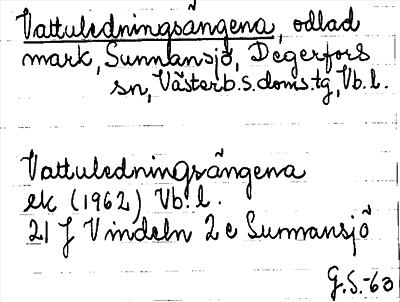 Vattuledningsängena, odlad
mark, Sunnansjö, Degerfors
sn, Västerb.s.doms.tg, Vb.l.
Vattuledningsängena
ek (1962) Vb.l.
21 J Vindeln 2 e Sunnansjö
G.S.-63